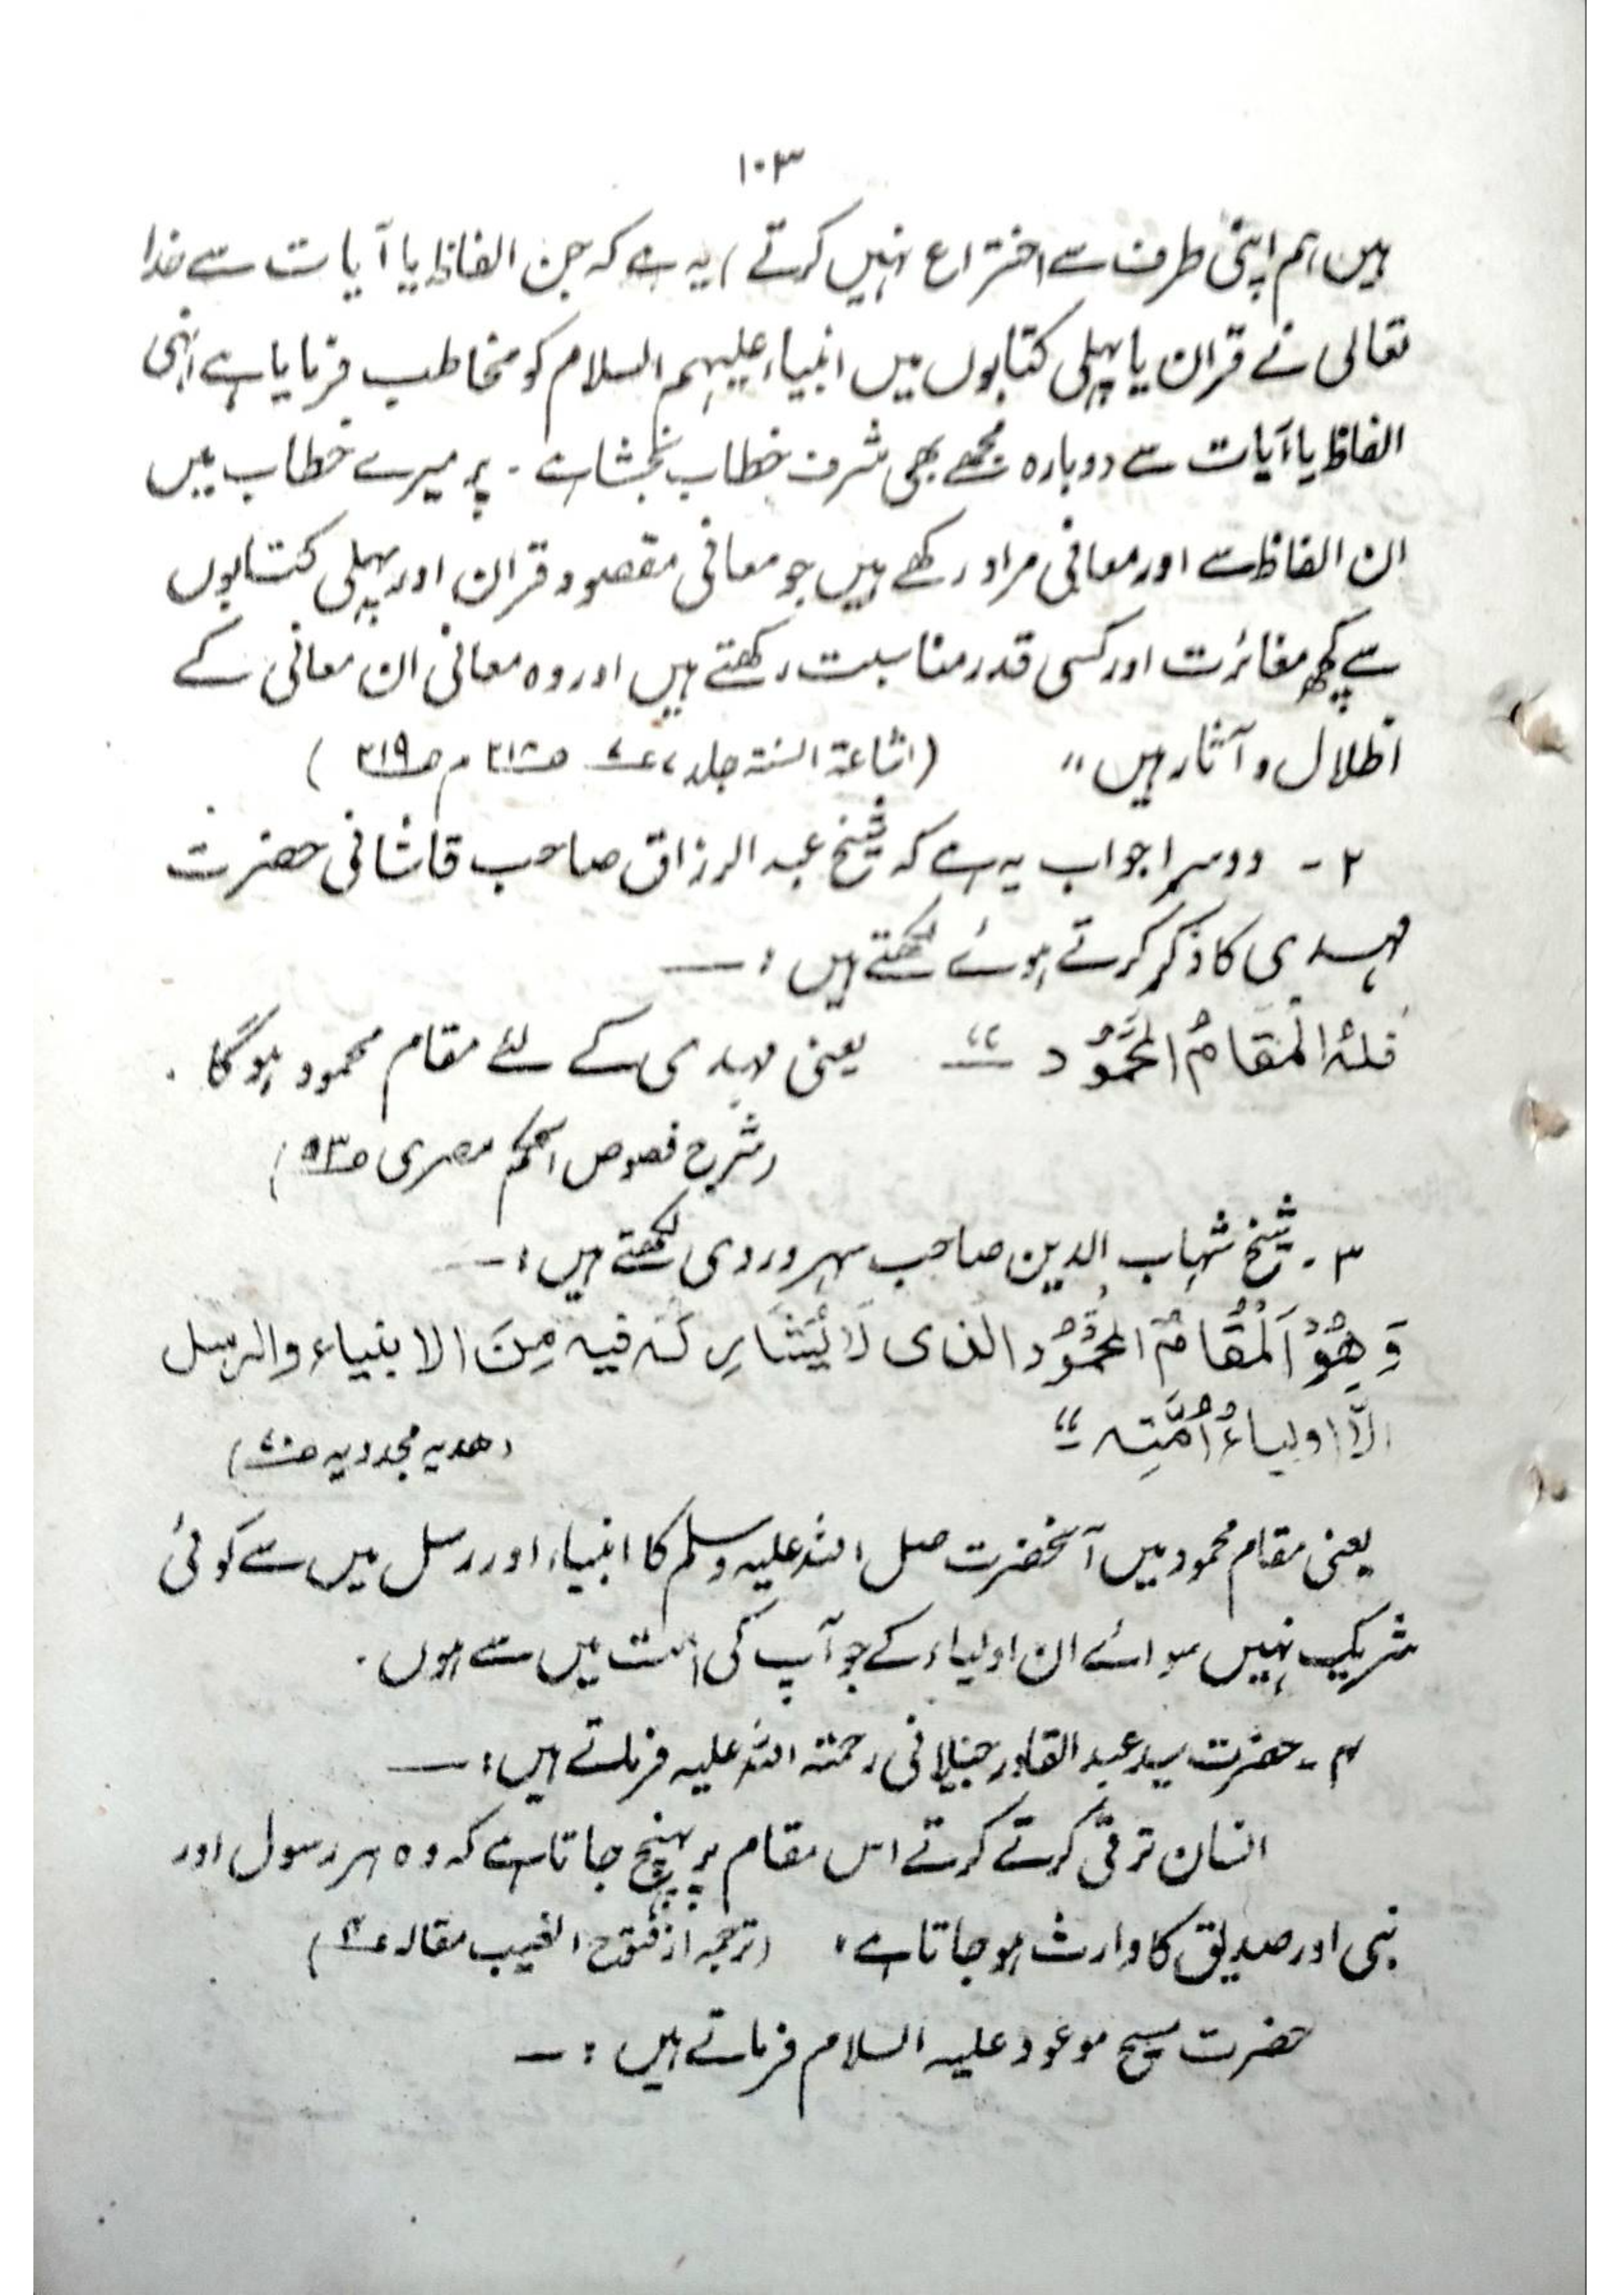 ۱۰۳
ہیں ہم اپنی طرف سے اختراع نہیں کرتے) یہ ہے کہ جن الفاظ یا آیات سے خدا
تعالیٰ نے قرآن یا پہلی کتابوں میں انبیاء علیہم السلام کو مخاطب فرمایا ہے انہی
الفاظ یا آیات سے دوبارہ مجھے بھی شرف خطاب بخشا ہے۔ پر میرے خطاب میں
ان الفاظ سے اور معانی مراد رکھے ہیں جو معانی مقصود قرآن اور پہلی کتابوں
سے کچھ مغائرت اور کسی قدر مناسبت رکھتے ہیں اور وہ معانی ان معانی کے
اظلال و آثار ہیں" (اشاعۃ السنۃ جلد ۷ ع ص ۲۱۸ م ص ۲۱۹)
۲ - دوسرا جواب یہ ہے کہ شیخ عبد الرزاق صاحب قاشانی حضرت
مہدی کا ذکر کرتے ہوئے لکھتے ہیں :—
فَلَہُ الْمَقَامُ الْمَحْمُوْد " یعنی مہدی کے لئے مقام محمود ہوگا۔
(شرح فصوص الحکم مصری ص ۵۳)
۳ - شیخ شہاب الدین صاحب سہروردی لکھتے ہیں :—
وَ ھُوَ الْمُقَامُ الْمَحْمُوْدُ الذی لَا یُشَارِکَہ فیہ مِنَ الانبیاء والرسل
اِلَّا اولیاءُ اُمَّتِہ " (ھدیہ مجددیہ ص ۷۰)
یعنی مقام محمود میں آنحضرت صلی اللہ علیہ وسلم کا انبیاء اور رسل میں سے کوئی
شریک نہیں سوائے ان اولیاء کے جو آپ کی امت میں سے ہوں۔
۴ - حضرت سید عبد القادر جیلانی رحمتہ اللہ علیہ فرماتے ہیں :—
انسان ترقی کرتے کرتے اس مقام پر پہنچ جاتا ہے کہ وہ ہر رسول اور
نبی اور صدیق کا وارث ہو جاتا ہے، (ترجمہ از فتوح الغیب مقالہ ۴)
حضرت مسیح موعود علیہ السلام فرماتے ہیں :—